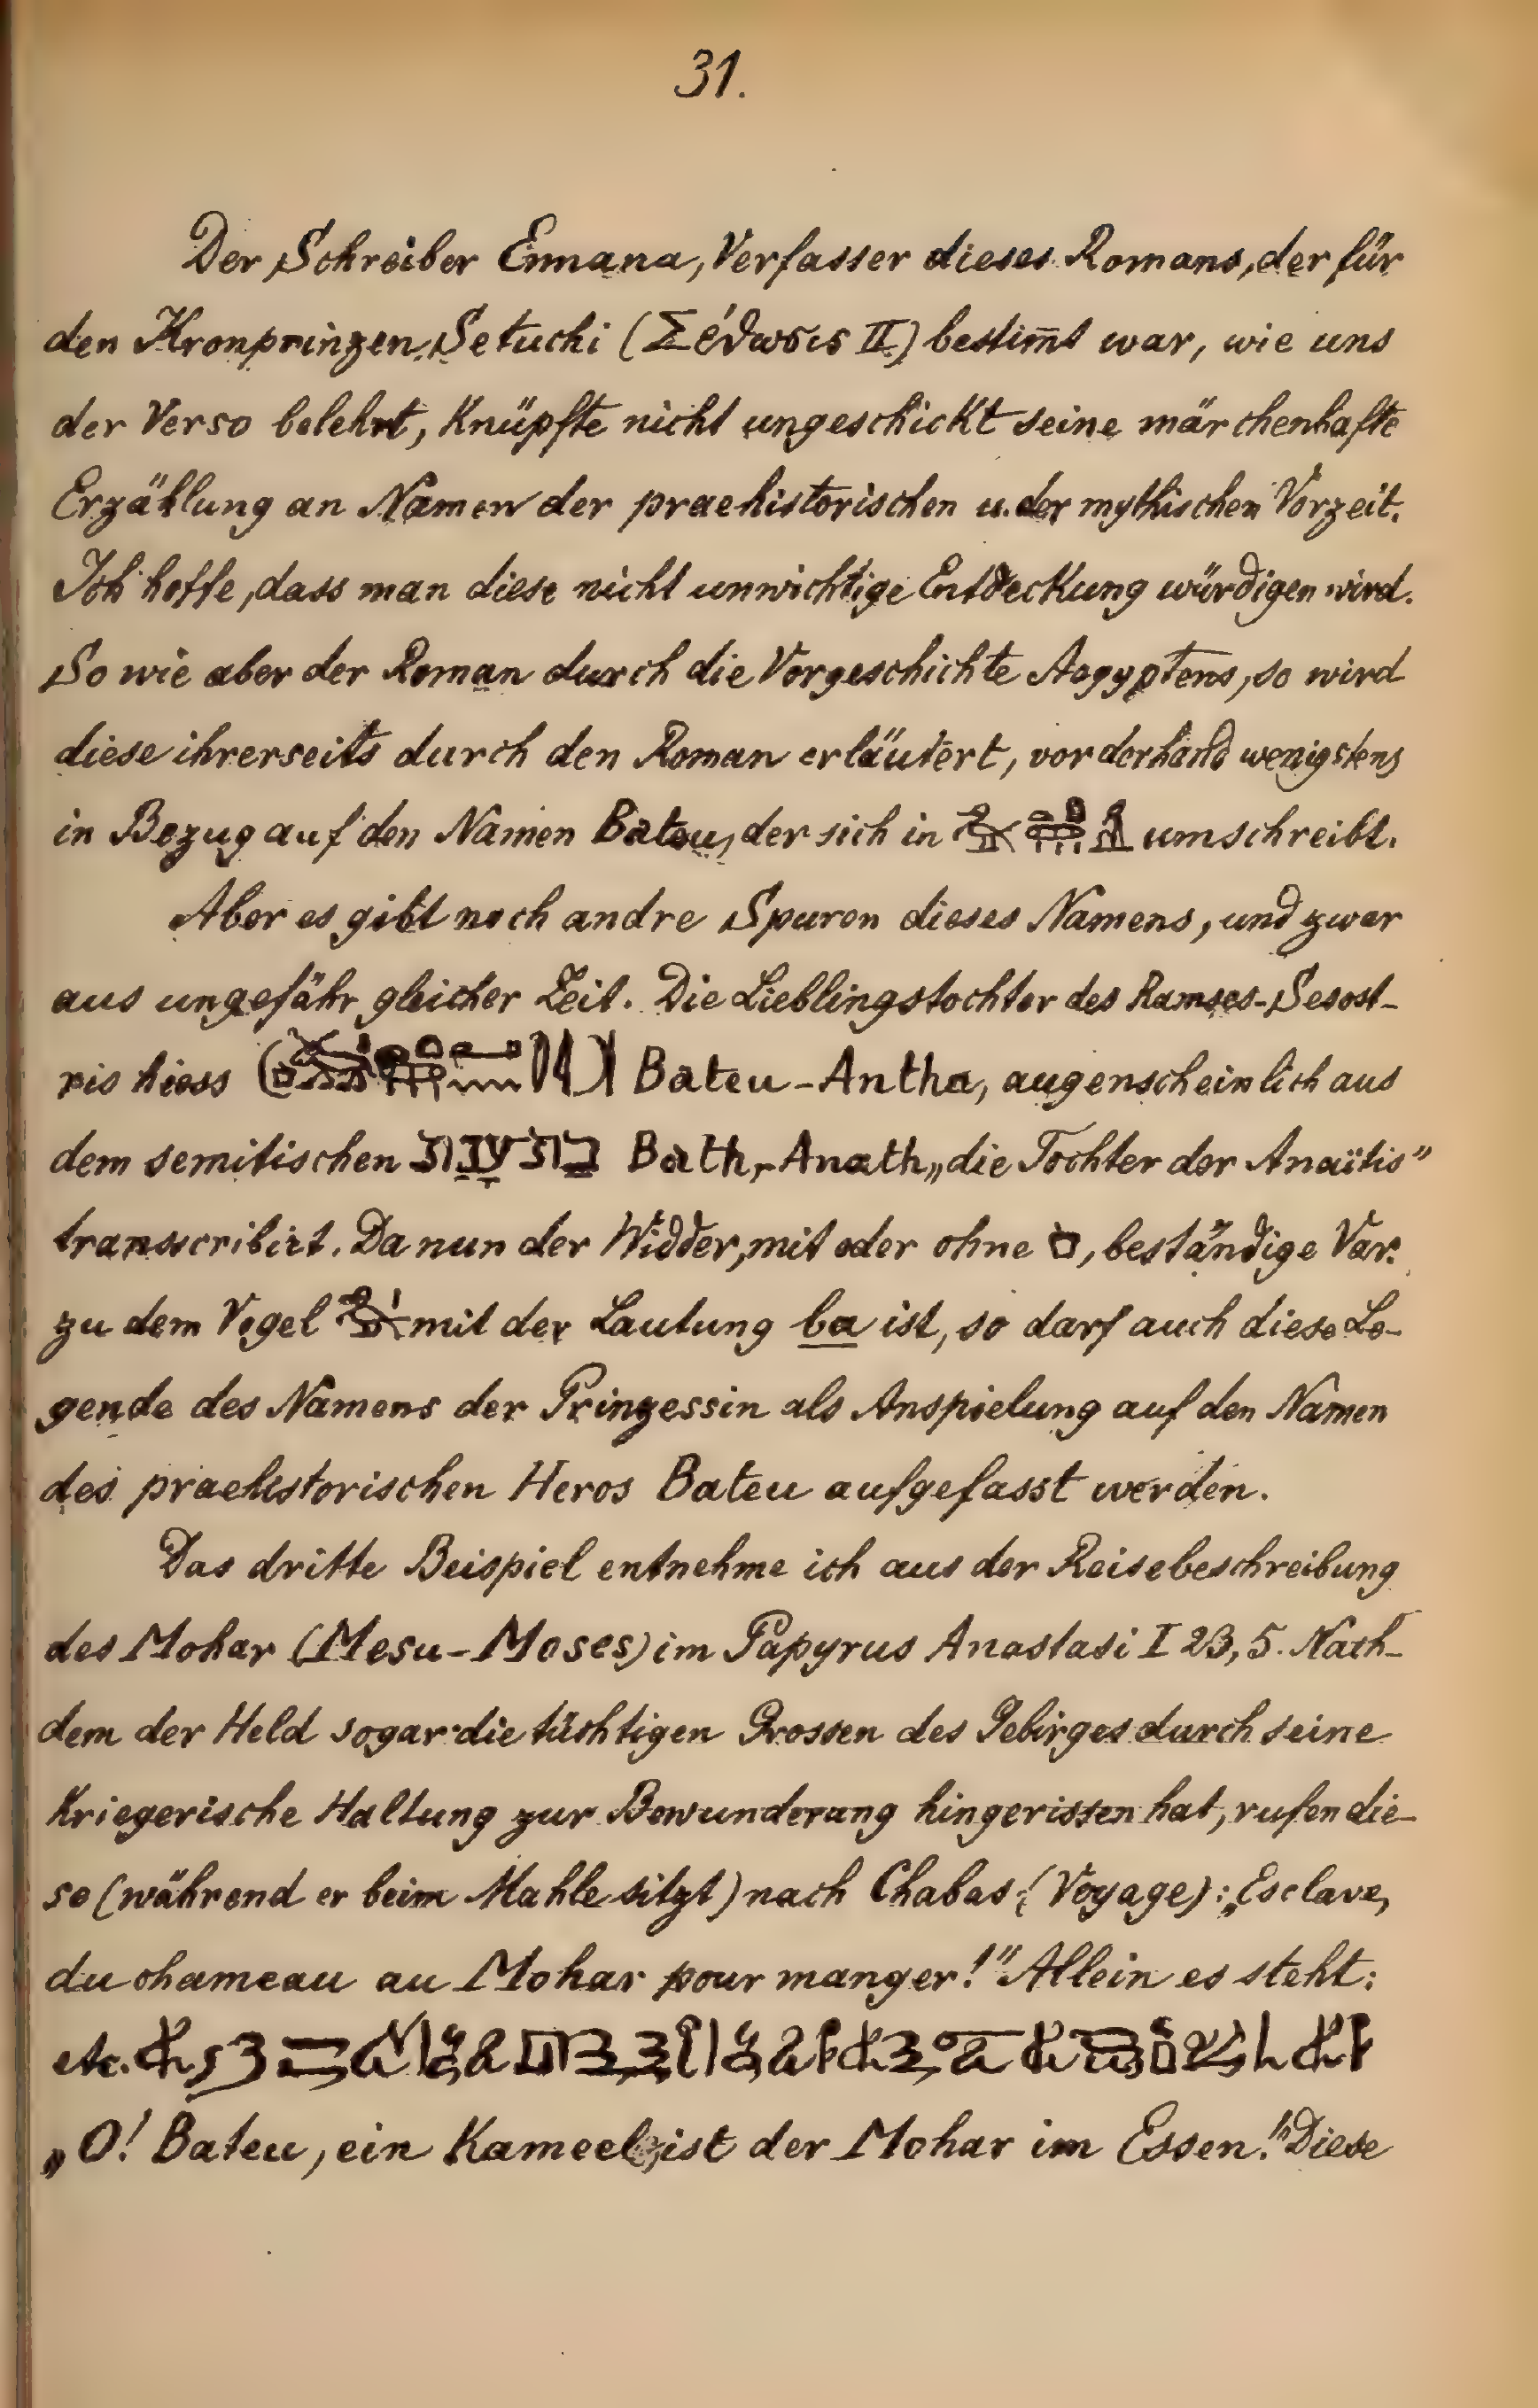 31.
Der Schreiber Ennana, Verfasser dieses Romans, der für
den Kronprinzen Setuchi (Σέθωσις II) bestim̄t war, wie uns
der Verso belehrt, knüpfte nicht ungeschickt seine märchenhafte
Erzählung an Namen der praehistorischen u. der mythischen Vorzeit.
Ich hoffe, dass man diese nicht unwichtige Entdeckung würdigen wird.
So wie aber der Roman durch die Vorgeschichte Aegyptens, so wird
diese ihrerseits durch den Roman erläutert, vorderhand wenigstens
in Bezug auf den Namen Bateu, der sich in umschreibt.
Aber es gibt noch andre Spuren dieses Namens, und zwar
aus ungefähr gleicher Zeit. Die Lieblingstochter des Ramses-Sesost-
ris hiess Bateu-Antha, augenscheinlich aus
dem semitischen בת ענת Bath-Anath „die Tochter der Anaïtis”
transscribirt. Da nun der Widder, mit oder ohne , beständige Var.
zu dem Vogel mit der Lautung ba ist, so darf auch diese Le-
gende des Namens der Prinzessin als Anspielung auf den Namen
des praehistorischen Heros Bateu aufgefasst werden.
Das dritte Beispiel entnehme ich aus der Reisebeschreibung
des Mohar (Mesu-Moses) im Papyrus Anastasi I 23, 5. Nach-
dem der Held sogar die tüchtigen Grossen des Gebirges durch seine
kriegerische Haltung zur Bewunderung hingerissen hat, rufen die-
se (während er beim Mahle sitzt) nach Chabas (Voyage): „Esclave,
du chameau au Mohar pour manger!” Allein es steht:
etc.
„O! Bateu, ein Kameel ist der Mohar im Essen!” Diese